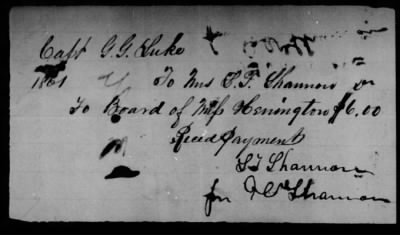 Capt G. G. Luke
1861 To Mrs S. T. Shannon Dr
To Board of Miss Henington $6.00
Recd Payment
S T Shannon
for Shannon